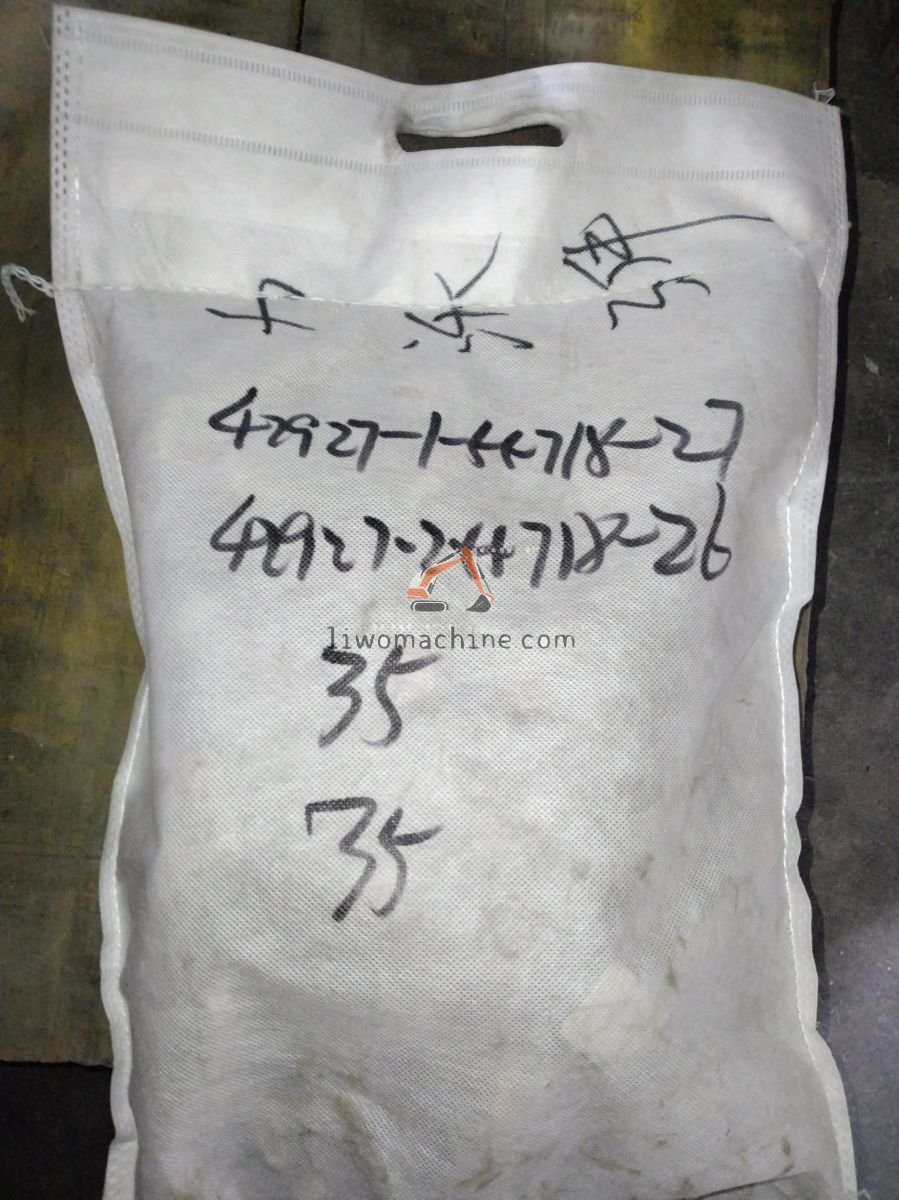 42927-1-44718-27
42927-2-44718-26
liwomachine.com
35
35